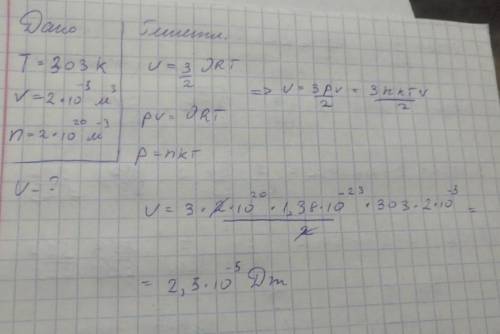 Дано
T = 303 K
V = 2·10⁻³ м³
n = 2·10²⁰ м⁻³
U - ?
Решение.
U = 3/2 νRT
pV = νRT
=> U = 3pV/2 = 3nkTV/2
p = nkT
U = 3·2·10²⁰·1,38·10⁻²³·303·2·10⁻³/2 =
= 2,3·10⁻³ Дж